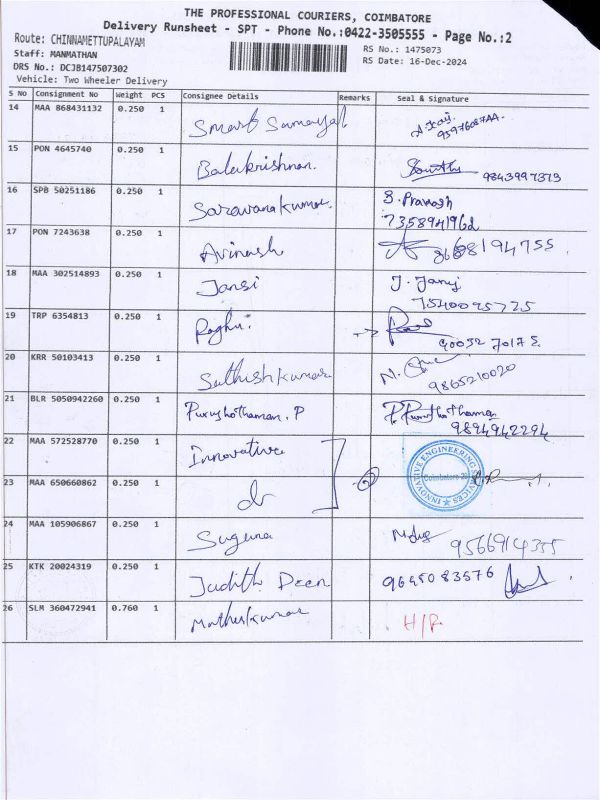 THE PROFESSIONAL COURIERS, COIMBATORE
Delivery Runsheet - SPT - Phone No.:0422-3505555 - Page No.:2
Route: CHINNAMETTUPALAYAM
Staff: MANMATHAN
DRS No.: DCJB147507302
Vehicle: Two Wheeler Delivery
RS No.: 1475073
RS Date: 16-Dec-2024
S No Consignment No Weight PCS Consignee Details Remarks Seal & Signature
14 MAA 868431132 0.250 1 Smart Samayal
15 PON 4645740 0.250 1 Balakrishnan. 9843997373
16 SPB 50251186 0.250 1 Saravanakumar. S. Pranash
7358941962
17 PON 7243638 0.250 1 Avinash
18 MAA 302514893 0.250 1 Jansi J. Jansi
7540095725
19 TRP 6354813 0.250 1 Raghu.
90032 70175
20 KRR 50103413 0.250 1 Sathishkumar
9865210020
21 BLR 5050942260 0.250 1 Purushothaman. P P. Purushothaman
9894942294
22 MAA 572528770 0.250 1 Innovative
INNOVATIVE ENGINEERING SERVICES
Coimbatore
23 MAA 650660862 0.250 1 do
24 MAA 105906867 0.250 1 Suguna 9566914355
25 KTK 20024319 0.250 1 Judith Deen 9645083576
26 SLM 360472941 0.760 1 Mathuskumar H/R.